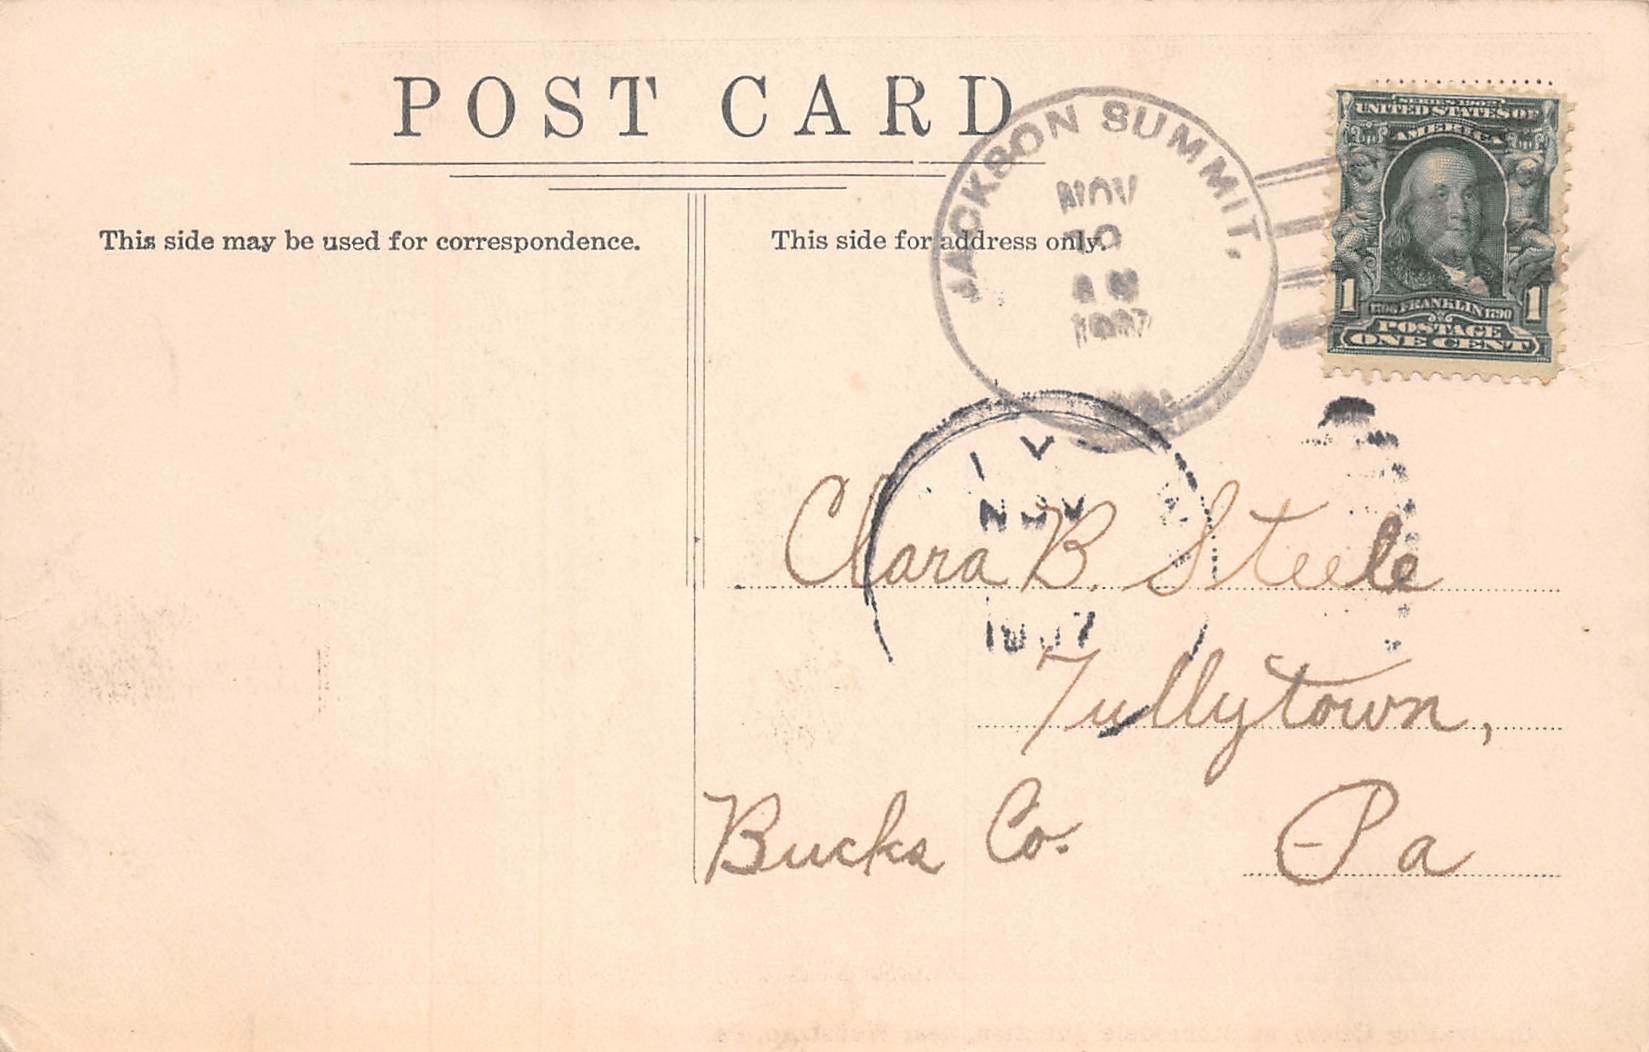 POST CARD
This side may be used for correspondence.
This side for address only.
JACKSON SUMMIT,
NOV
1907
SERIES 1902
UNITED STATES OF
AMERICA
1 1706 FRANKLIN 1790 1
POSTAGE
ONE CENT
NOV
1907
Clara B. Steele
Tullytown,
Bucks Co. Pa